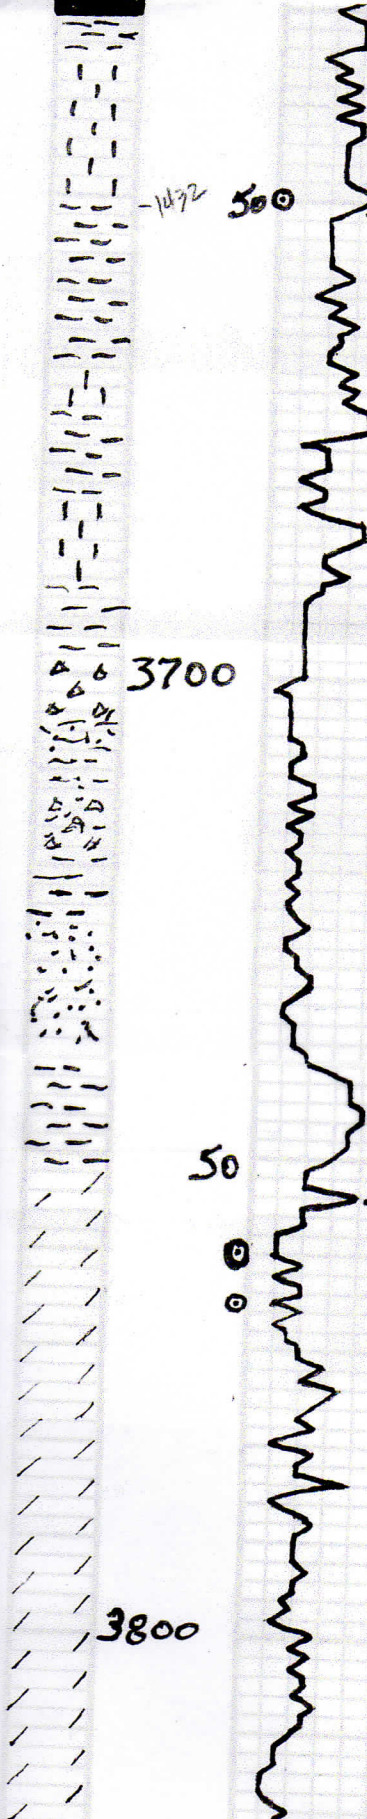 -1432 50
3700
50
3800